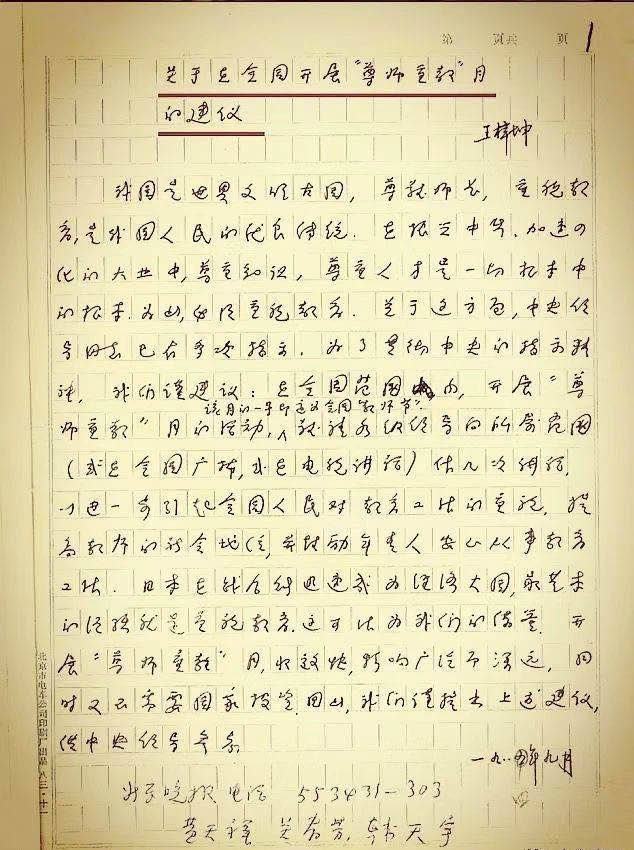 第 页共 页
1
关于在全国开展“尊师重教”月
的建议
王梓坤
我国是世界文明古国，尊敬师长，重视教
育，是我国人民的优良传统．在振兴中华、加速四
化的大业中，尊重知识，尊重人才是一切根本中
的根本．为此，必须重视教育．关于这方面，中央领
导同志已有多次指示．为了贯彻中央的指示精
神，我们谨建议：在全国范围内，开展“尊
该月的一号即定为全国“教师节”．
师重教”月的活动，敦请各级领导向所属范围
（或在全国广播，或在电视讲话）作几次讲话．
以进一步引起全国人民对教育工作的重视．提
高教师的社会地位，并鼓励年青人安心从事教育
工作．日本在战后能迅速成为经济大国，最基本
的经验就是重视教育．这可作为我们的借鉴．开
展“尊师重教”月，收效快，影响广泛而深远，同
时又不需要国家投资．因此，我们谨提出上述建议，
供中央领导参考
一九八四年九月
北京晚报 电话 553431－303
黄天祥
北京市电车公司印刷厂出品 八三·十一